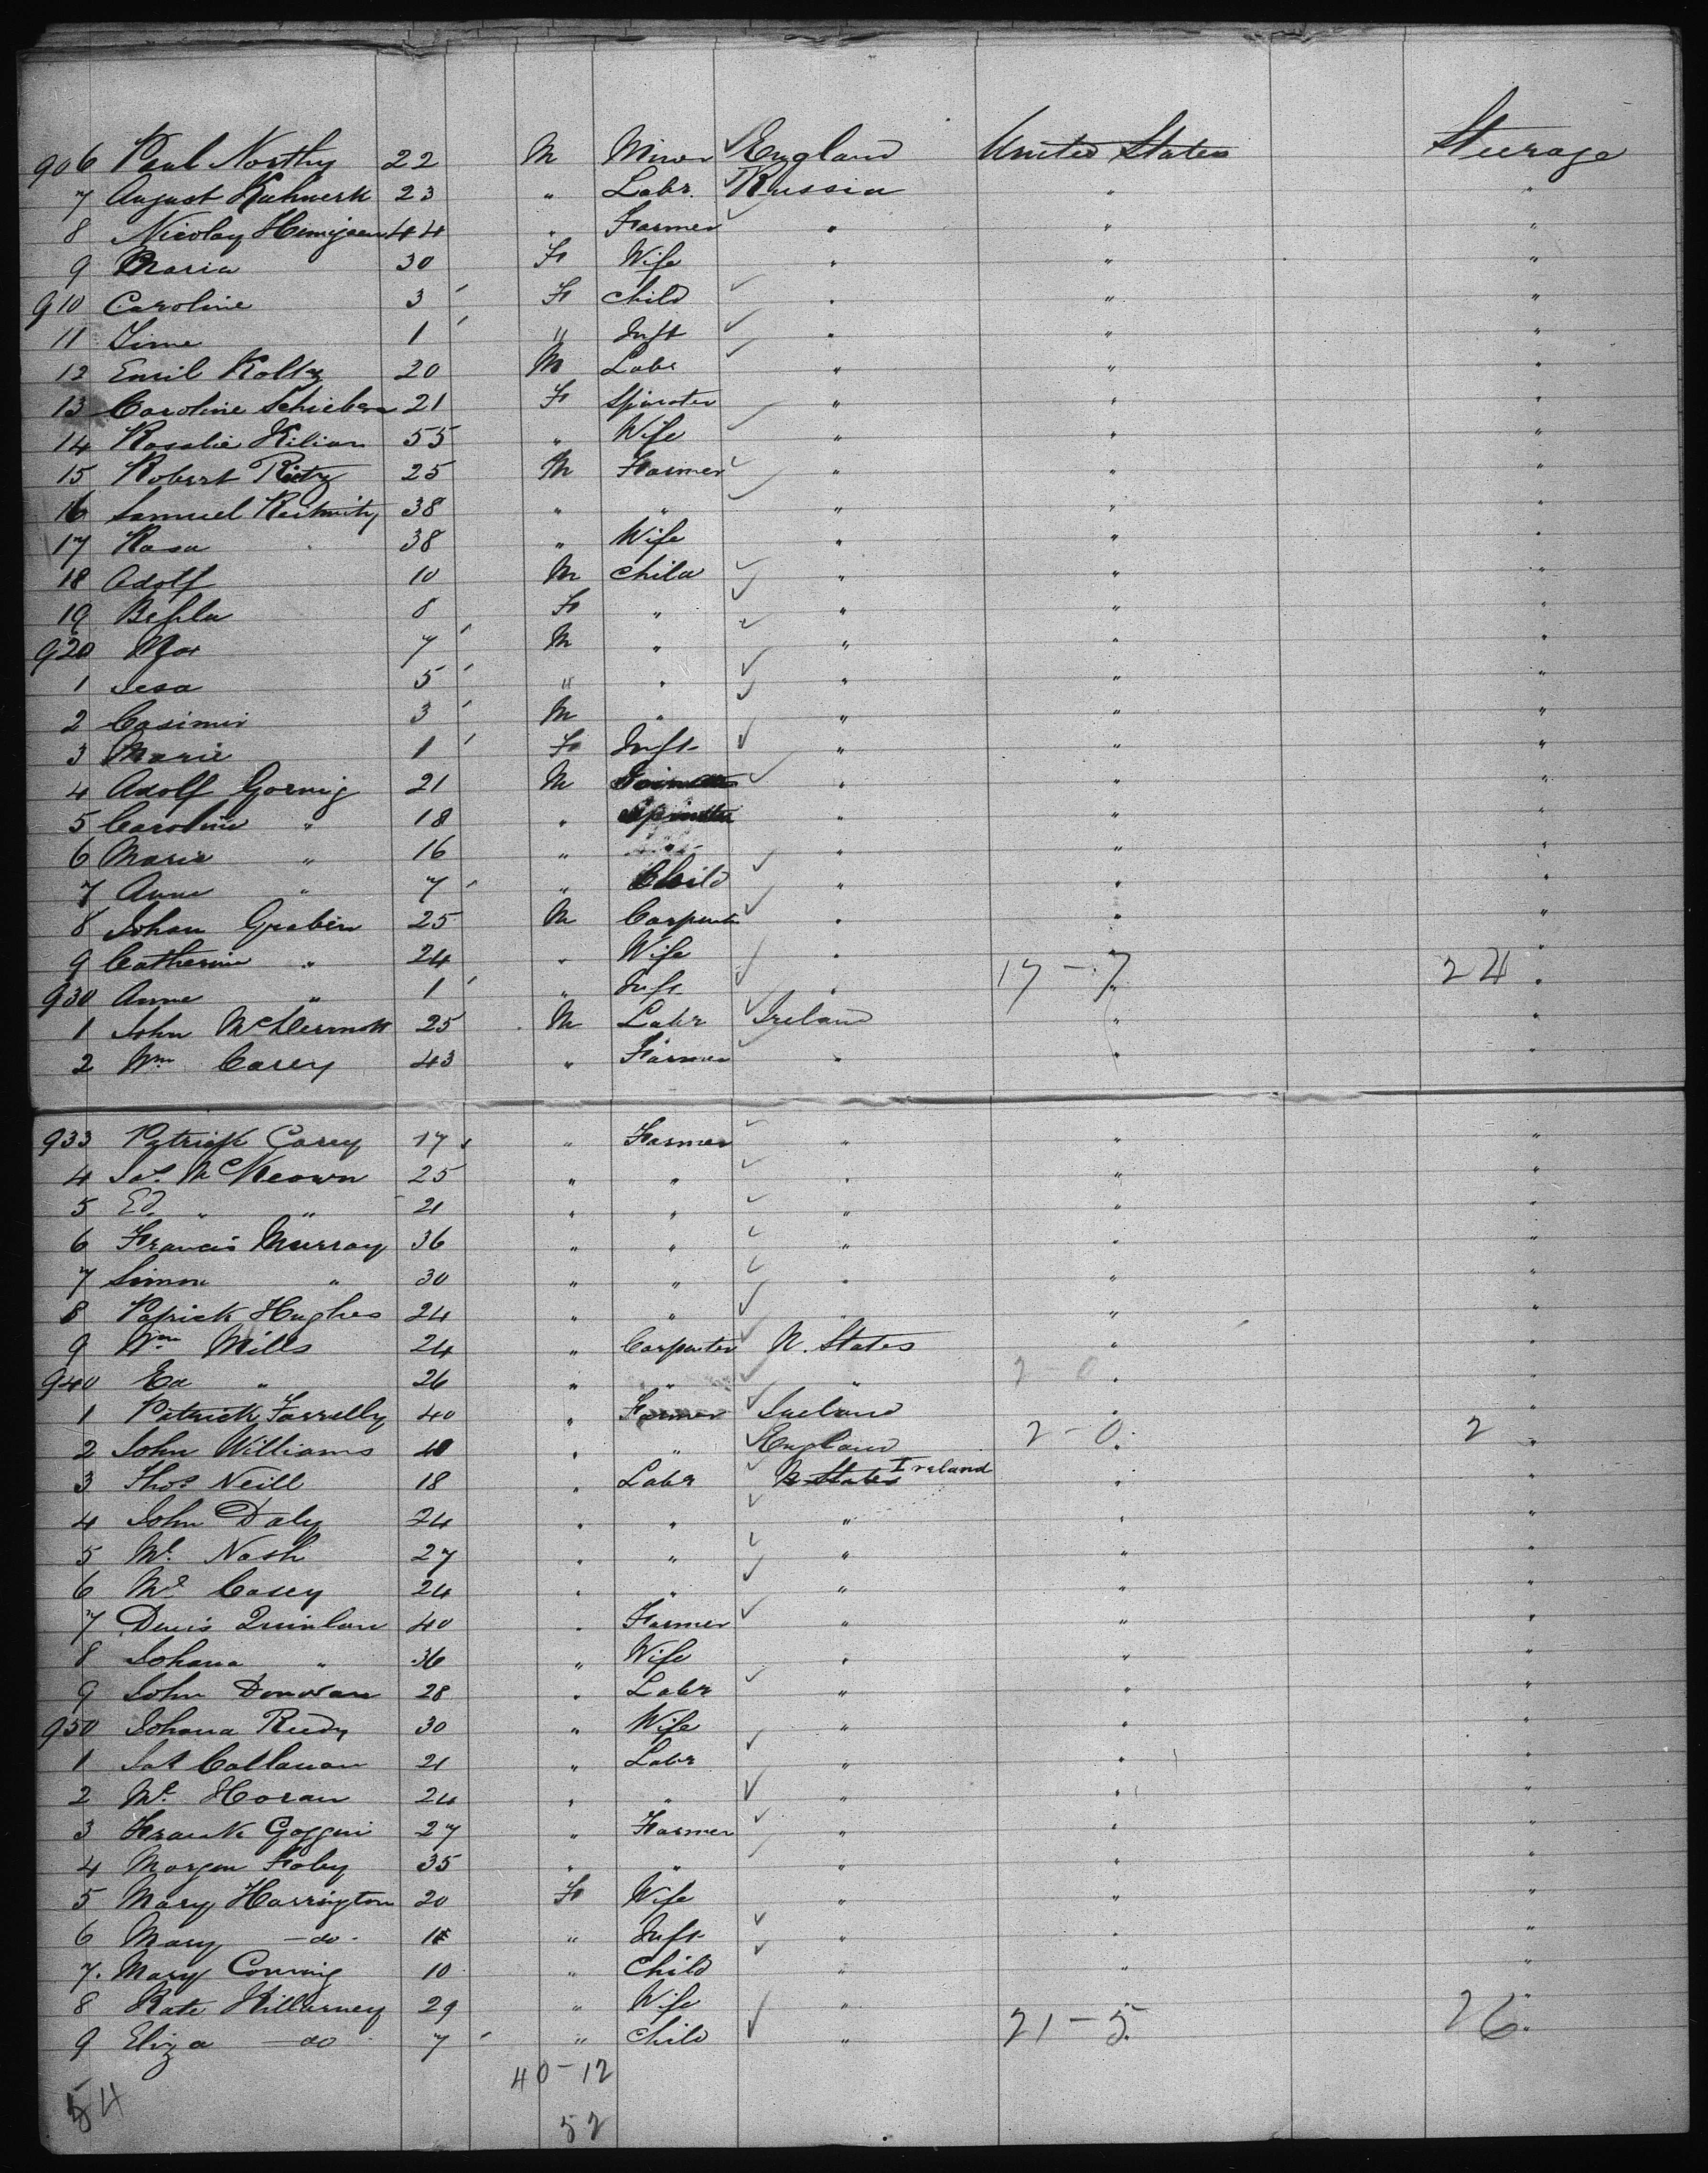 906 Paul Northy 22 M Miner ✓ England United States Steerage
7 August Kuhnerk 23 " Labr. ✓ Russia " "
8 Nicolay 44 " Farmer ✓ " " "
9 Maria 30 F Wife " " "
910 Caroline 3 ' F Child ✓ " " "
11 1 ' " Inft ✓ " " "
12 Emil Koltz 20 M Labr ✓ " " "
13 Caroline 21 F Spinster ✓ " " "
14 Rosalie Kilian 55 " Wife " " "
15 Robert Rietz 25 M Farmer ✓ " " "
16 Samuel 38 " " ✓ " " "
17 Rosa 38 " Wife " " "
18 Adolf 10 M Child ✓ " " "
19 8 F " ✓ " " "
920 Max 7 ' M " ✓ " " "
1 5 ' " " ✓ " " "
2 Casimir 3 ' M " ✓ " " "
3 Marie 1 ' F Inft ✓ " " "
4 Adolf Gornig 21 M ✓ " " "
5 Caroline " 18 " Spinster " " "
6 Marie " 16 " " " " "
7 Anna " 7 ' " Child ✓ " " "
8 Johan Grabin 25 M Carpenter ✓ " " "
9 Catherine " 24 " Wife " 17 - 7 24 "
930 Anne " 1 ' " Inft ✓ " " "
1 John McDermott 25 M Labr ✓ Ireland " "
2 Wm Carey 43 " Farmer " " "
933 Patrick Carey 17 " Farmer ✓ " " "
4 Jas. McKeown 25 " " ✓ " " "
5 Ed. " " 21 " " ✓ " " "
6 Francis Murray 36 " " ✓ " " "
7 Simon " 30 " " ✓ " " "
8 Patrick Hughes 24 " " ✓ " " "
9 Wm Mills 24 " Carpenter ✓ U. States " "
940 Ed " 26 " " ✓ " 2 - 0 " "
1 Patrick Farrelly 40 " Farmer ✓ Ireland " "
2 John Williams 40 " " ✓ England 2 - 0 " 2 "
3 Thos Neill 18 " Labr ✓ U States Ireland " "
4 John Daly 24 " " ✓ " " "
5 Ml. Nash 27 " " ✓ " " "
6 Ml. Casey 24 " " ✓ " " "
7 Denis Quinlan 40 " Farmer ✓ " " "
8 Johana " 36 " Wife " " "
9 John Donovan 28 " Labr ✓ " " "
950 Johana Reedy 30 " Wife " " "
1 Jas Callanan 21 " Labr ✓ " " "
2 Ml. Horan 24 " " ✓ " " "
3 Frank Goggin 27 " Farmer ✓ " " "
4 Morgan Foley 35 " " ✓ " " "
5 Mary Harrington 20 F Wife " " "
6 Mary - do - 1 " Inft ✓ " " "
7. Mary 10 " Child ✓ " " "
8 Kate Killarney 29 " Wife " " "
9 Eliza - do - 7 ' " Child ✓ " 21 - 5 " 26 "
54 40 - 12
52